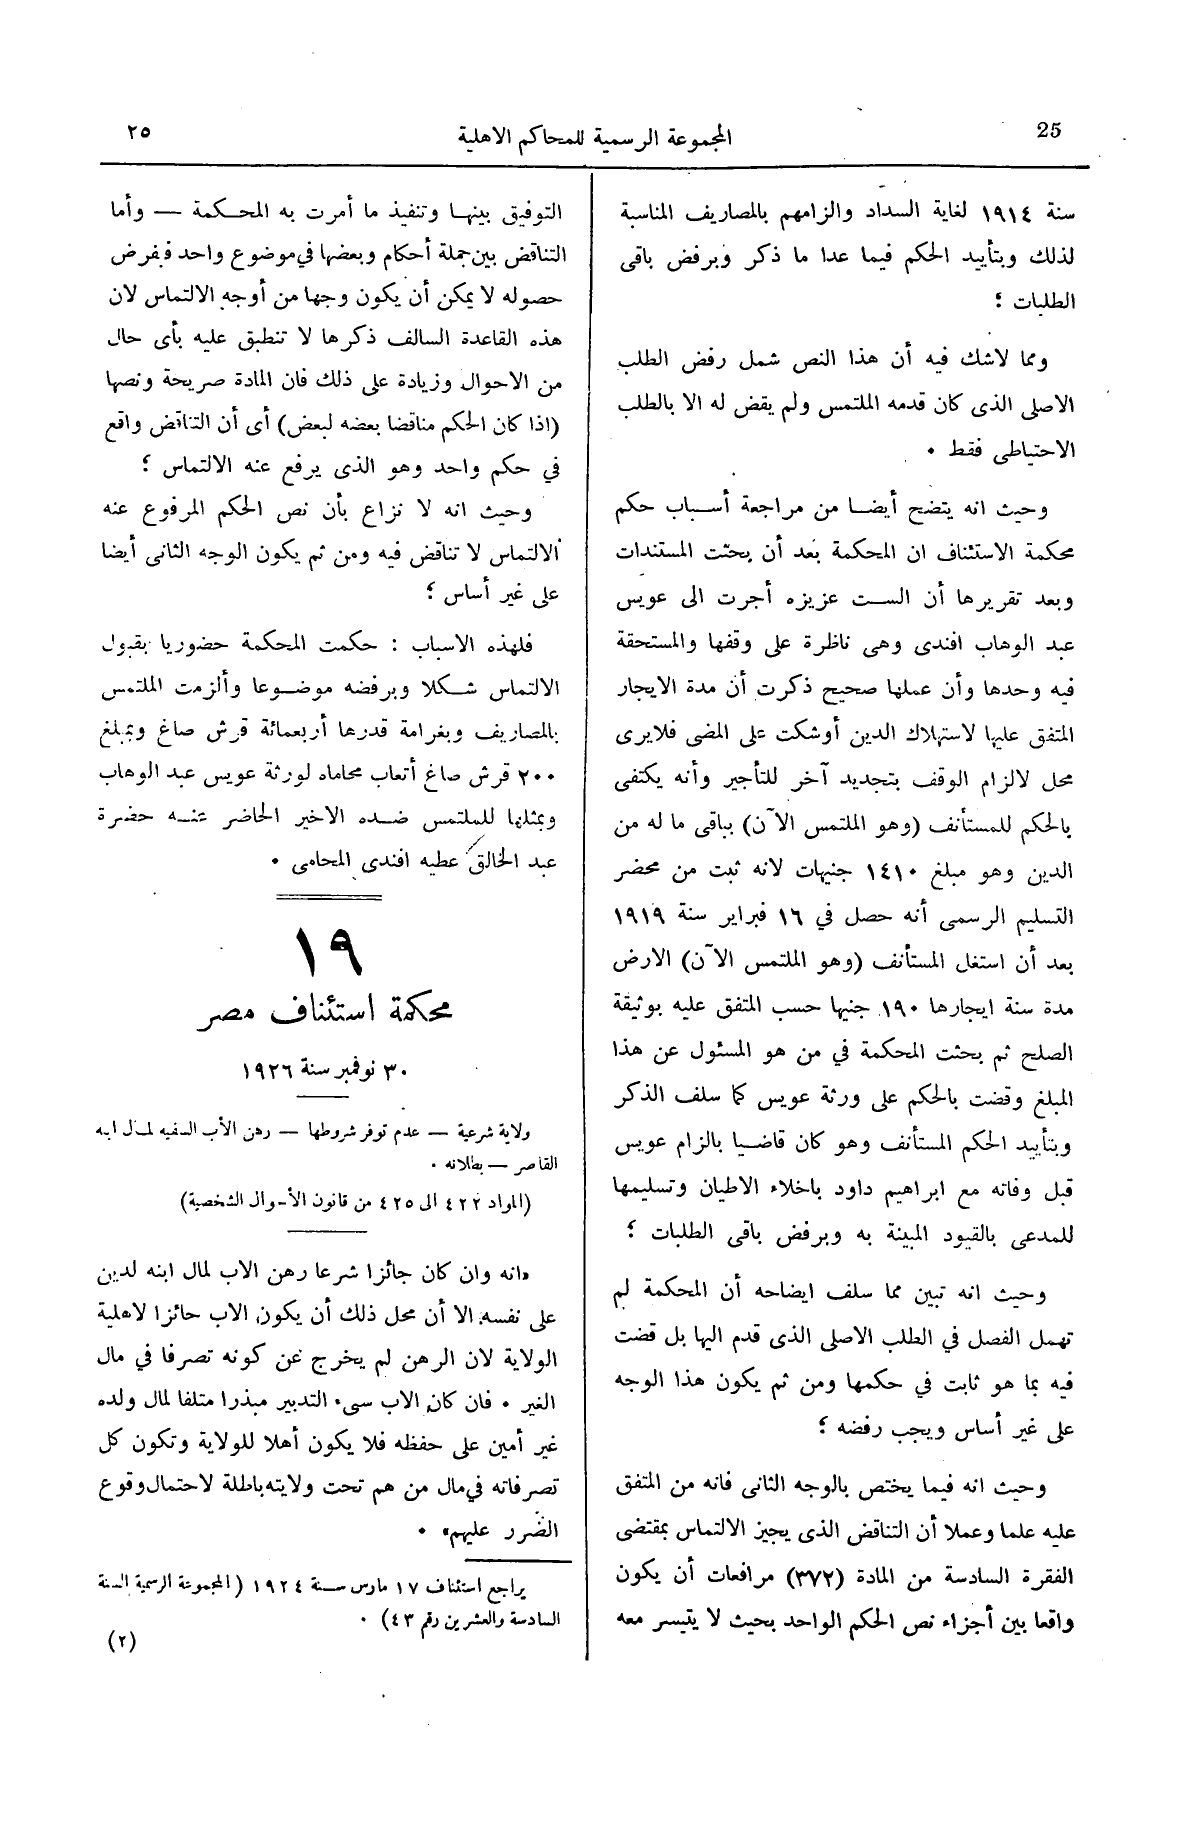 25
المجموعة الرسمية للمحاكم الاهلية
٢٥
سنة ١٩١٤ لغاية السداد والزامهم بالمصاريف المناسبة
لذلك وبتأييد الحكم فيما عدا ما ذكر وبرفض باقى
الطلبات ؛
ومما لاشك فيه أن هذا النص شمل رفض الطلب
الاصلى الذى كان قدمه الملتمس ولم يقض له الا بالطلب
الاحتياطى فقط .
وحيث انه يتضح أيضا من مراجعة أسباب حكم
محكمة الاستئناف ان المحكمة بعد أن بحثت المستندات
وبعد تقريرها أن الست عزيزه أجرت الى عويس
عبد الوهاب افندى وهى ناظرة على وقفها والمستحقة
فيه وحدها وأن عملها صحيح ذكرت أن مدة الايجار
المتفق عليها لاستهلاك الدين أوشكت على المضى فلايرى
محل لالزام الوقف بتجديد آخر للتأجير وأنه يكتفى
بالحكم للمستأنف (وهو الملتمس الآن) بباقى ما له من
الدين وهو مبلغ ١٤١٠ جنيهات لانه ثبت من محضر
التسليم الرسمى أنه حصل في ١٦ فبراير سنة ١٩١٩
بعد أن استغل المستأنف (وهو الملتمس الآن) الارض
مدة سنة ايجارها ١٩٠ جنيها حسب المتفق عليه بوثيقة
الصلح ثم بحثت المحكمة في من هو المسئول عن هذا
المبلغ وقضت بالحكم على ورثة عويس كما سلف الذكر
وبتأييد الحكم المستأنف وهو كان قاضيا بالزام عويس
قبل وفاته مع ابراهيم داود باخلاء الاطيان وتسليمها
للمدعى بالقيود المبينة به وبرفض باقى الطلبات ؛
وحيث انه تبين مما سلف ايضاحه أن المحكمة لم
تهمل الفصل في الطلب الاصلى الذى قدم اليها بل قضت
فيه بما هو ثابت في حكمها ومن ثم يكون هذا الوجه
على غير أساس ويجب رفضه ؛
وحيث انه فيما يختص بالوجه الثانى فانه من المتفق
عليه علما وعملا أن التناقض الذى يجيز الالتماس بمقتضى
الفقرة السادسة من المادة (٣٧٢) مرافعات أن يكون
واقعا بين أجزاء نص الحكم الواحد بحيث لا يتيسر معه
التوفيق بينها وتنفيذ ما أمرت به المحكمة — وأما
التناقض بين جملة أحكام وبعضها في موضوع واحد فبفرض
حصوله لا يمكن أن يكون وجها من أوجه الالتماس لان
هذه القاعدة السالف ذكرها لا تنطبق عليه بأى حال
من الاحوال وزيادة على ذلك فان المادة صريحة ونصها
(اذا كان الحكم مناقضا بعضه لبعض) أى أن التناقض واقع
في حكم واحد وهو الذى يرفع عنه الالتماس ؛
وحيث انه لا نزاع بأن نص الحكم المرفوع عنه
الالتماس لا تناقض فيه ومن ثم يكون الوجه الثانى أيضا
على غير أساس ؛
فلهذه الاسباب : حكمت المحكمة حضوريا بقبول
الالتماس شكلا وبرفضه موضوعا وألزمت الملتمس
بالمصاريف وبغرامة قدرها أربعمائة قرش صاغ وبمبلغ
٢٠٠ قرش صاغ أتعاب محاماه لورثة عويس عبد الوهاب
وبمثلها للملتمس ضده الاخير الحاضر عنه حضرة
عبد الخالق عطيه افندى المحامى .
١٩
محكمة استئناف مصر
٣٠ نوفمبر سنة ١٩٢٦
ولاية شرعية — عدم توفر شروطها — رهن الأب السفيه لمال ابنه
القاصر — بطلانه .
(المواد ٤٢٢ الى ٤٢٥ من قانون الأحوال الشخصية)
«انه وان كان جائزا شرعا رهن الاب لمال ابنه لدين
على نفسه الا أن محل ذلك أن يكون الاب حائزا لاهلية
الولاية لان الرهن لم يخرج عن كونه تصرفا في مال
الغير . فان كان الاب سىء التدبير مبذرا متلفا لمال ولده
غير أمين على حفظه فلا يكون أهلا للولاية وتكون كل
تصرفاته في مال من هم تحت ولايته باطلة لاحتمال وقوع
الضرر عليهم» .
يراجع استئناف ١٧ مارس سنة ١٩٢٤ (المجموعة الرسمية السنة
السادسة والعشرين رقم ٤٣) .
(٢)